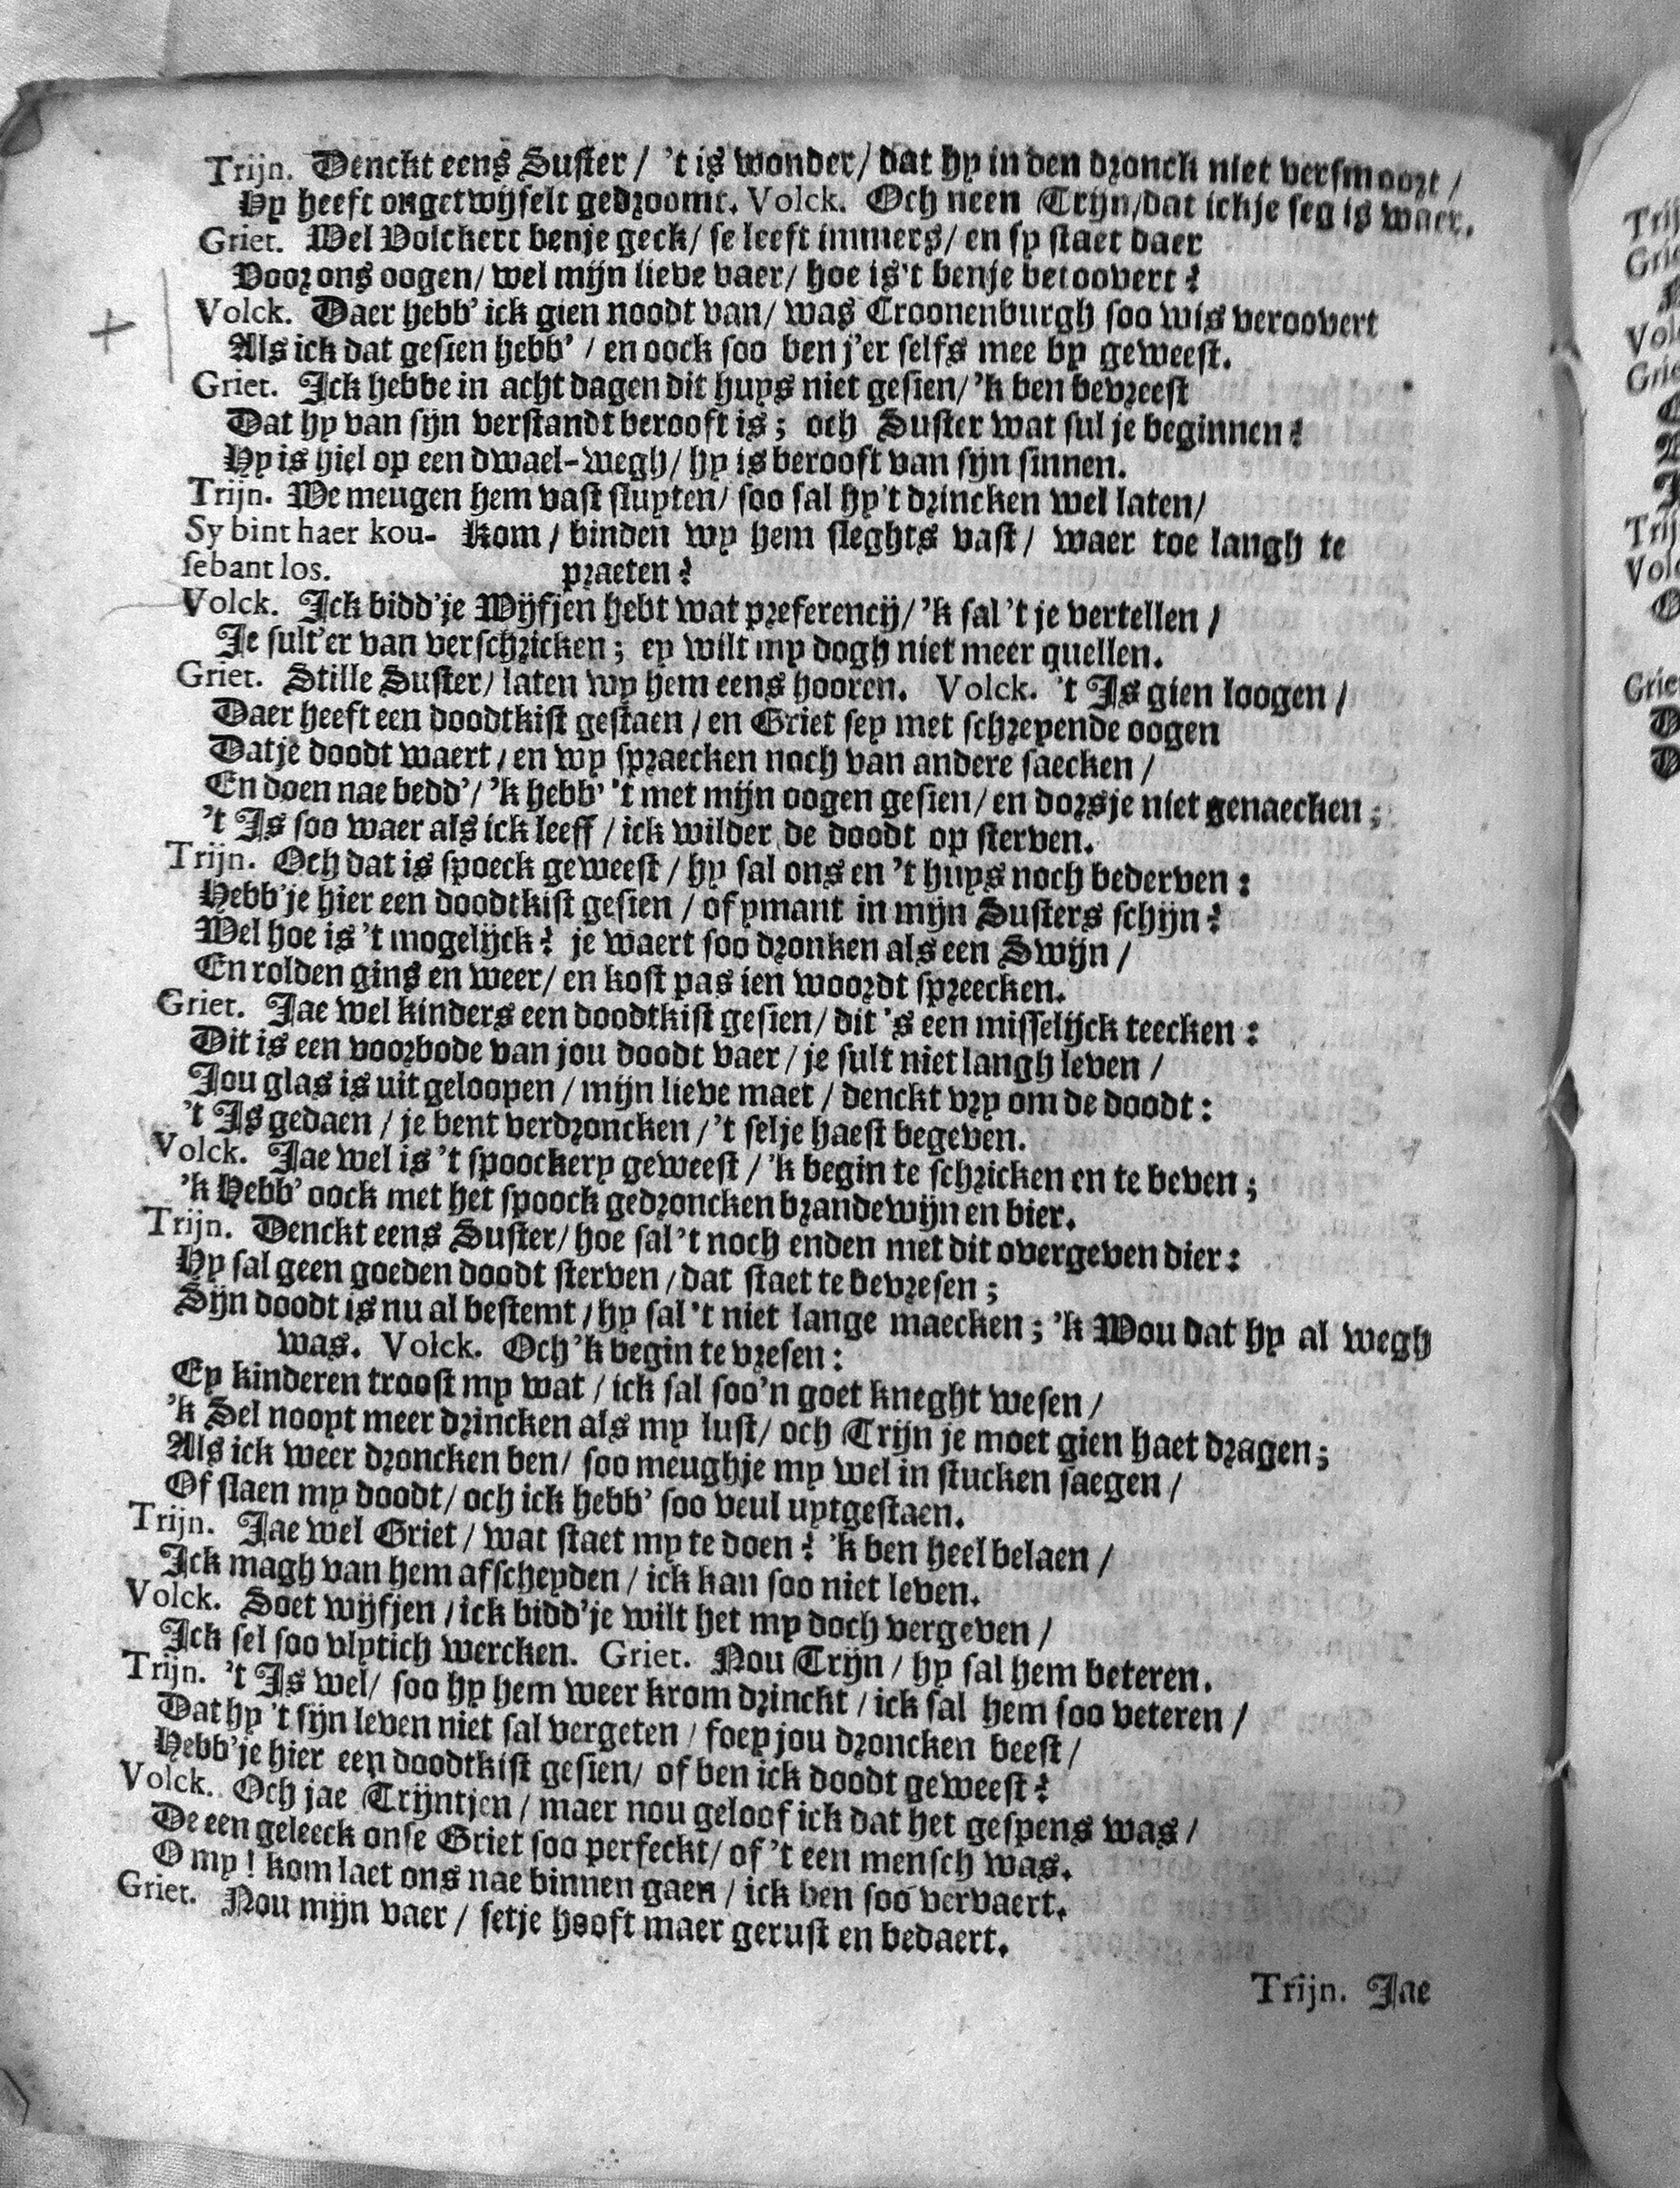 Trijn. Denckt eens Suster / 't is wonder / dat hy in den dronck niet versmoort /
Hy heeft ongetwijfelt gedroomt. Volck. Och neen Trijn/dat ick je seg is waer.
Griet. Wel Volckert benje geck / se leeft immers / en sy staet daer
Voor ons oogen / wel mijn lieve vaer / hoe is 't benje betoovert?
Volck. Daer hebb' ick gien noodt van / was Croonenburgh soo wis veroovert
Als ick dat gesien hebb' / en oock soo ben j'er selfs mee by geweest.
Griet. Ick hebbe in acht dagen dit huys niet gesien / 'k ben bevreest
Dat hy van sijn verstandt berooft is; och Suster wat sul je beginnen?
Hy is hiel op een dwael-wegh / hy is berooft van sijn sinnen.
Trijn. We meugen hem vast sluyten / soo sal hy 't drincken wel laten /
Sy bint haer kou- Kom / binden wy hem sleghts vast / waer toe langh te
sebant los. praeten?
Volck. Ick bidd'je Wijfjen hebt wat preferencij / 'k sal 't je vertellen /
Je sult'er van verschricken; ey wilt my dogh niet meer quellen.
Griet. Stille Suster / laten wy hem eens hooren. Volck. 't Is gien loogen /
Daer heeft een doodtkist gestaen / en Griet sey met schreyende oogen
Datje doodt waert / en wy spraecken noch van andere saecken /
En doen nae bedd' / 'k hebb' 't met mijn oogen gesien / en dorsje niet genaecken;
't Is soo waer als ick leeff / ick wilder de doodt op sterven.
Trijn. Och dat is spoeck geweest / hy sal ons en 't huys noch bederven:
Hebb'je hier een doodtkist gesien / of ymant in mijn Susters schijn?
Wel hoe is 't mogelijck? je waert soo dronken als een Swijn /
En rolden gins en weer / en kost pas ien woordt spreecken.
Griet. Jae wel kinders een doodtkist gesien / dit 's een misselijck teecken:
Dit is een voorbode van jou doodt vaer / je sult niet langh leven /
Jou glas is uit geloopen / mijn lieve maet / denckt vry om de doodt:
't Is gedaen / je bent verdroncken / 't selje haest begeven.
Volck. Jae wel is 't spoockery geweest / 'k begin te schricken en te beven;
'k Hebb' oock met het spoock gedroncken brandewijn en bier.
Trijn. Denckt eens Suster / hoe sal 't noch enden met dit overgeven dier:
Hy sal geen goeden doodt sterven / dat staet te bevresen;
Sijn doodt is nu al bestemt / hy sal 't niet lange maecken; 'k Wou dat hy al wegh
was. Volck. Och 'k begin te vresen:
Ey kinderen troost my wat / ick sal soo'n goet kneght wesen /
'k Sel nooyt meer drincken als my lust / och Trijn je moet gien haet dragen;
Als ick weer droncken ben / soo meughje my wel in stucken saegen /
Of slaen my doodt / och ick hebb' soo veul uytgestaen.
Trijn. Jae wel Griet / wat staet my te doen? 'k ben heel belaen /
Ick magh van hem afscheyden / ick kan soo niet leven.
Volck. Soet wijfjen / ick bidd'je wilt het my doch vergeven /
Ick sel soo vlytich wercken. Griet. Nou Trijn / hy sal hem beteren.
Trijn. 't Is wel / soo hy hem weer krom drinckt / ick sal hem soo veteren /
Dat hy 't sijn leven niet sal vergeten / foey jou droncken beest /
Hebb'je hier een doodtkist gesien / of ben ick doodt geweest?
Volck. Och jae Trijntjen / maer nou geloof ick dat het gespens was /
De een geleeck onse Griet soo perfeckt / of 't een mensch was.
O my! kom laet ons nae binnen gaen / ick ben soo vervaert.
Griet. Nou mijn vaer / setje hooft maer gerust en bedaert.
Trijn. Jae